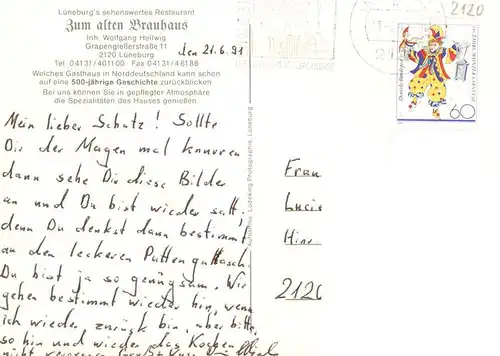 Lüneburg's sehenswertes Restaurant
Zum alten Brauhaus
Inh. Wolfgang Hellwig
Grapengießerstraße 11
2120 Lüneburg
Tel. 04131/401100 Fax 04131/
Welches Gasthaus in Norddeutschland kann schon
auf eine 500-jährige Geschichte zurückblicken
Bei uns können Sie in gepflegter Atmosphäre
die Spezialitäten des Hauses genießen.
den 21.6.91
2120
Deutsche Bundespost
60
Mein lieber Schatz! Sollte
Dir der Magen mal knurren
dann sehe Dir diese Bilder
an und Du bist wieder satt,
denn Du denkst dann bestimmt
an den leckeren Puttengullasch.
Du bist ja so genügsam. Wir
gehen bestimmt wieder hin, wenn
ich wieder zurück bin, aber bitte,
so hin und wieder das Kochen
nicht vergessen
Lüdeking Photographie, Lüneburg
Frau
Lucie
2120